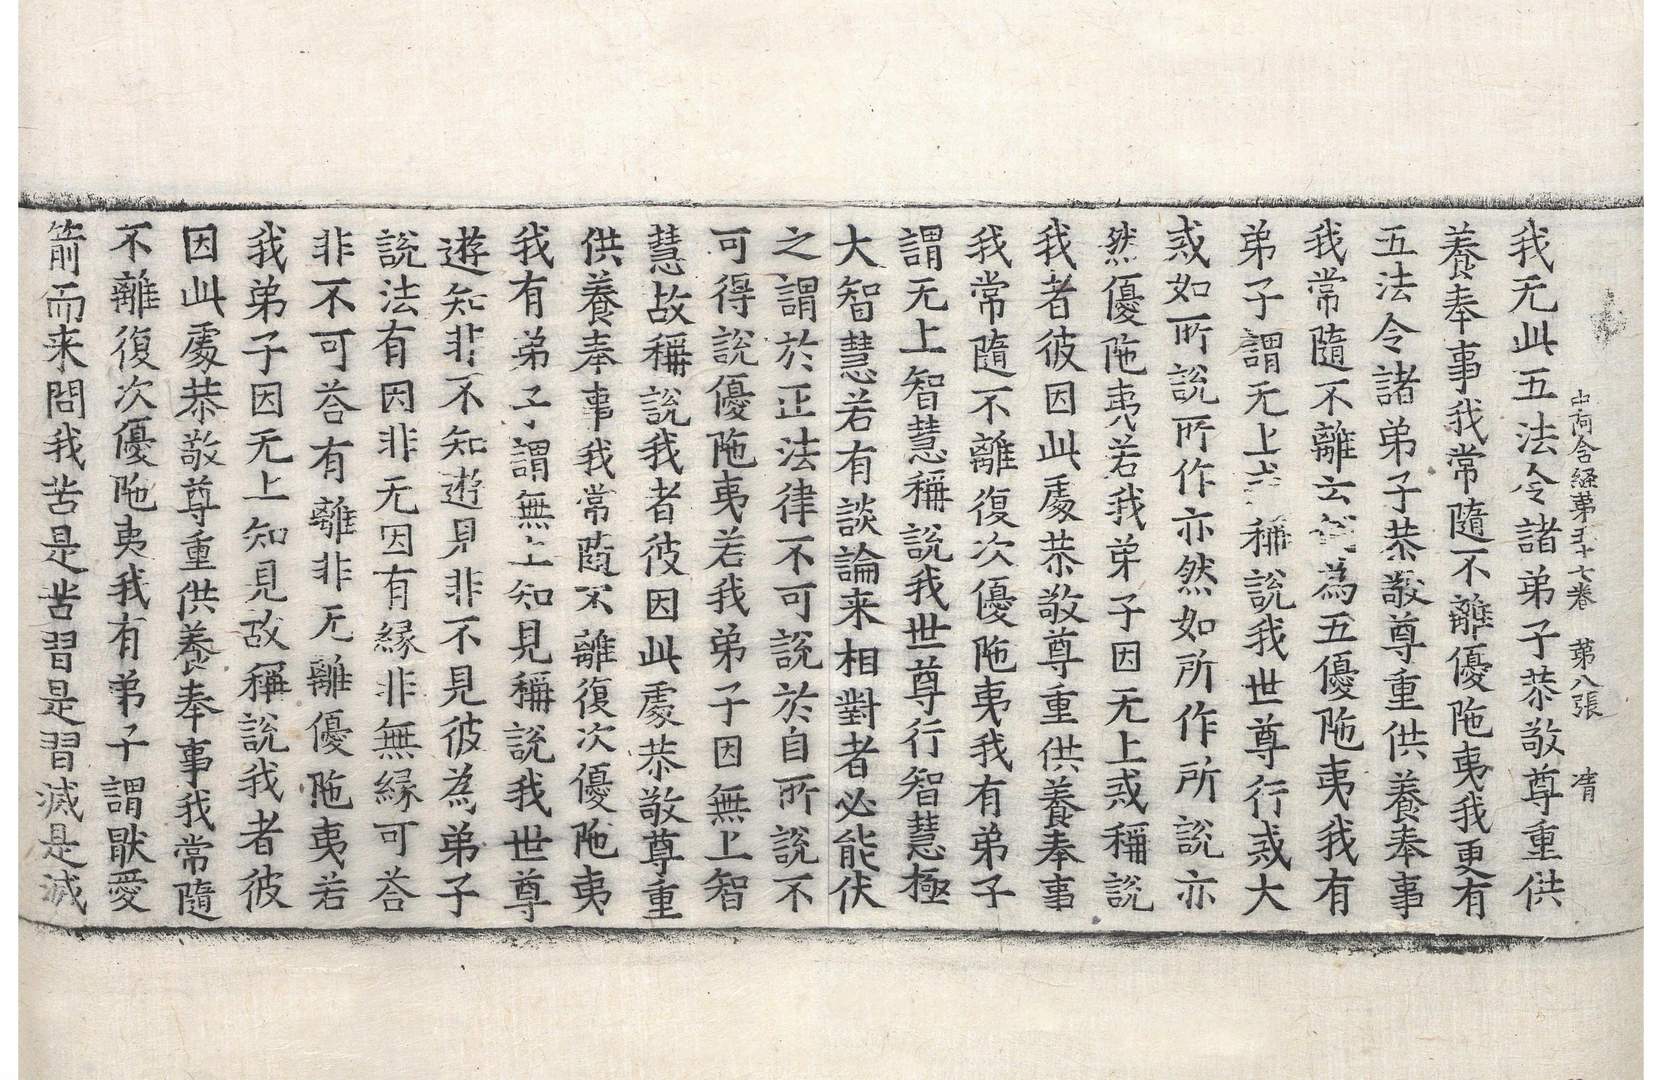 中阿含経第五十七卷 第八張 淸
我无此五法令諸弟子恭敬尊重供
養奉事我常隨不離優陁夷我更有
五法令諸弟子恭敬尊重供養奉事
我常隨不離云何為五優陁夷我有
弟子謂无上戒稱說我世尊行戒大
戒如所說所作亦然如所作所說亦
然優陁夷若我弟子因无上戒稱說
我者彼因此處恭敬尊重供養奉事
我常隨不離復次優陁夷我有弟子
謂无上智慧稱說我世尊行智慧極
大智慧若有談論来相對者必能伏
之謂於正法律不可說於自所說不
可得說優陁夷若我弟子因無上智
慧故稱說我者彼因此處恭敬尊重
供養奉事我常隨不離復次優陁夷
我有弟子謂無上知見稱說我世尊
遊知非不知遊見非不見彼為弟子
說法有因非无因有緣非無緣可荅
非不可荅有離非无離優陁夷若
我弟子因无上知見故稱說我者彼
因此處恭敬尊重供養奉事我常隨
不離復次優陁夷我有弟子謂猒愛
箭而来問我苦是苦習是習滅是滅